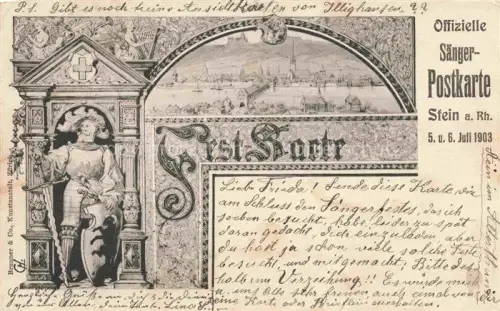 P.S. Gibt es noch keine Ansichtkarten von Illighausen ??
Offizielle
Sänger-
Postkarte
Stein a. Rh.
5. u. 6. Juli 1903
Fest-Karte
Brunner & Co., Kunstanstalt, Zürich
Liebe Frieda! Sende diese Karte dir
am Schluss des Sängerfestes, das ich
soeben besucht, habe leider zu spät
daran gedacht, dich einzuladen, aber
du hast ja schon viele solche Feste
besucht und mitgemacht; Bitte des-
halb um Verzeihung!! Es würde mich
u. uns alle sehr freuen auch einmal von
eine Karte oder Brieflein erhalten.